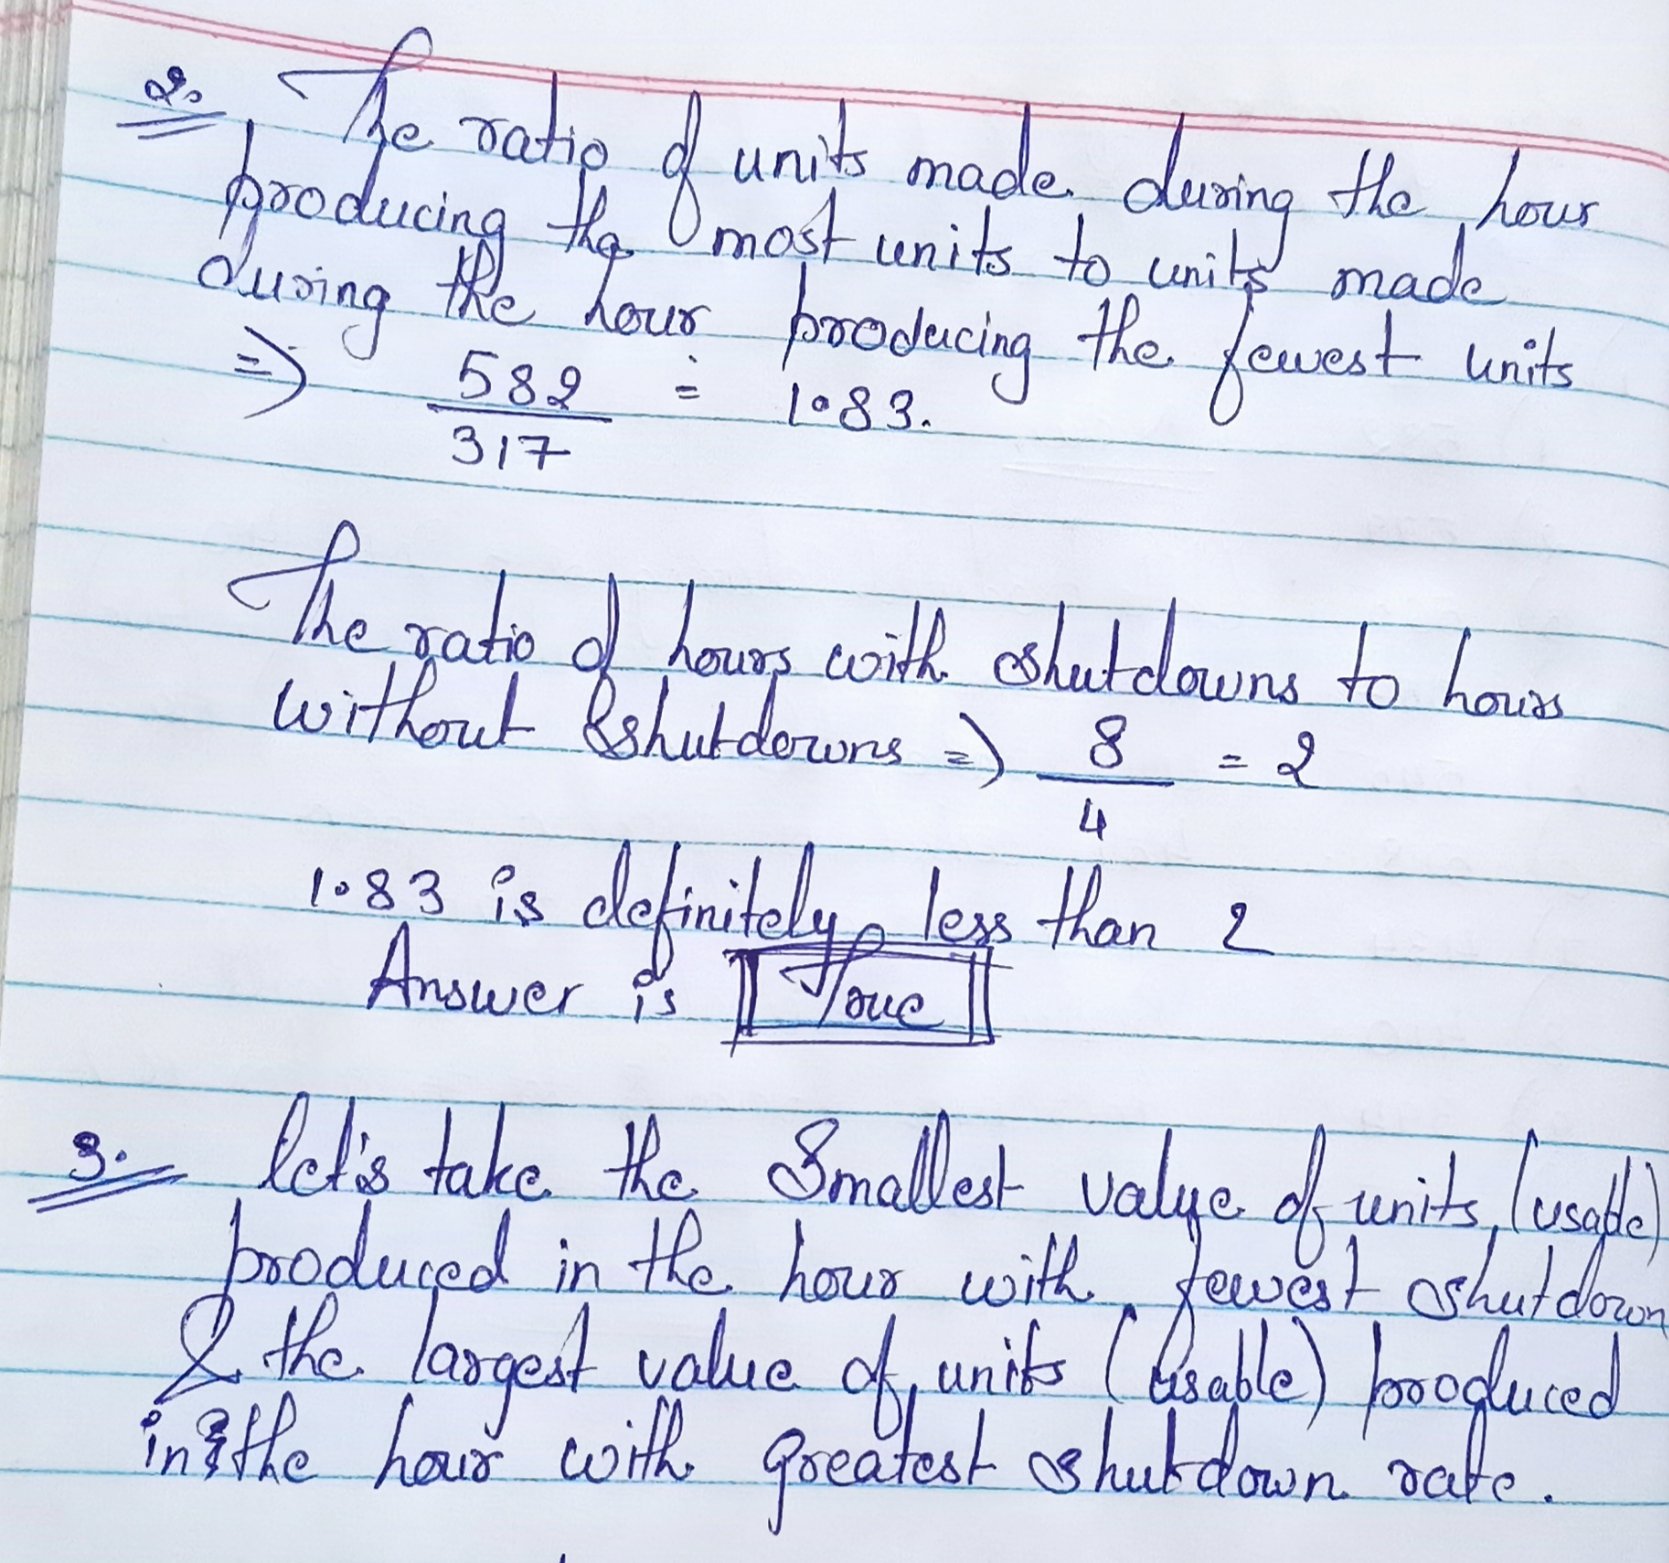 2. The ratio of units made during the hour
producing the most units to units made
during the hour producing the fewest units
=> 582/317 = 1.83.
The ratio of hours with shutdowns to hours
without shutdowns => 8/4 = 2
1.83 is definitely less than 2
Answer is True
3. let's take the Smallest value of units (usable)
produced in the hour with fewest shutdown
& the largest value of units (usable) produced
in the hour with greatest shutdown rate.